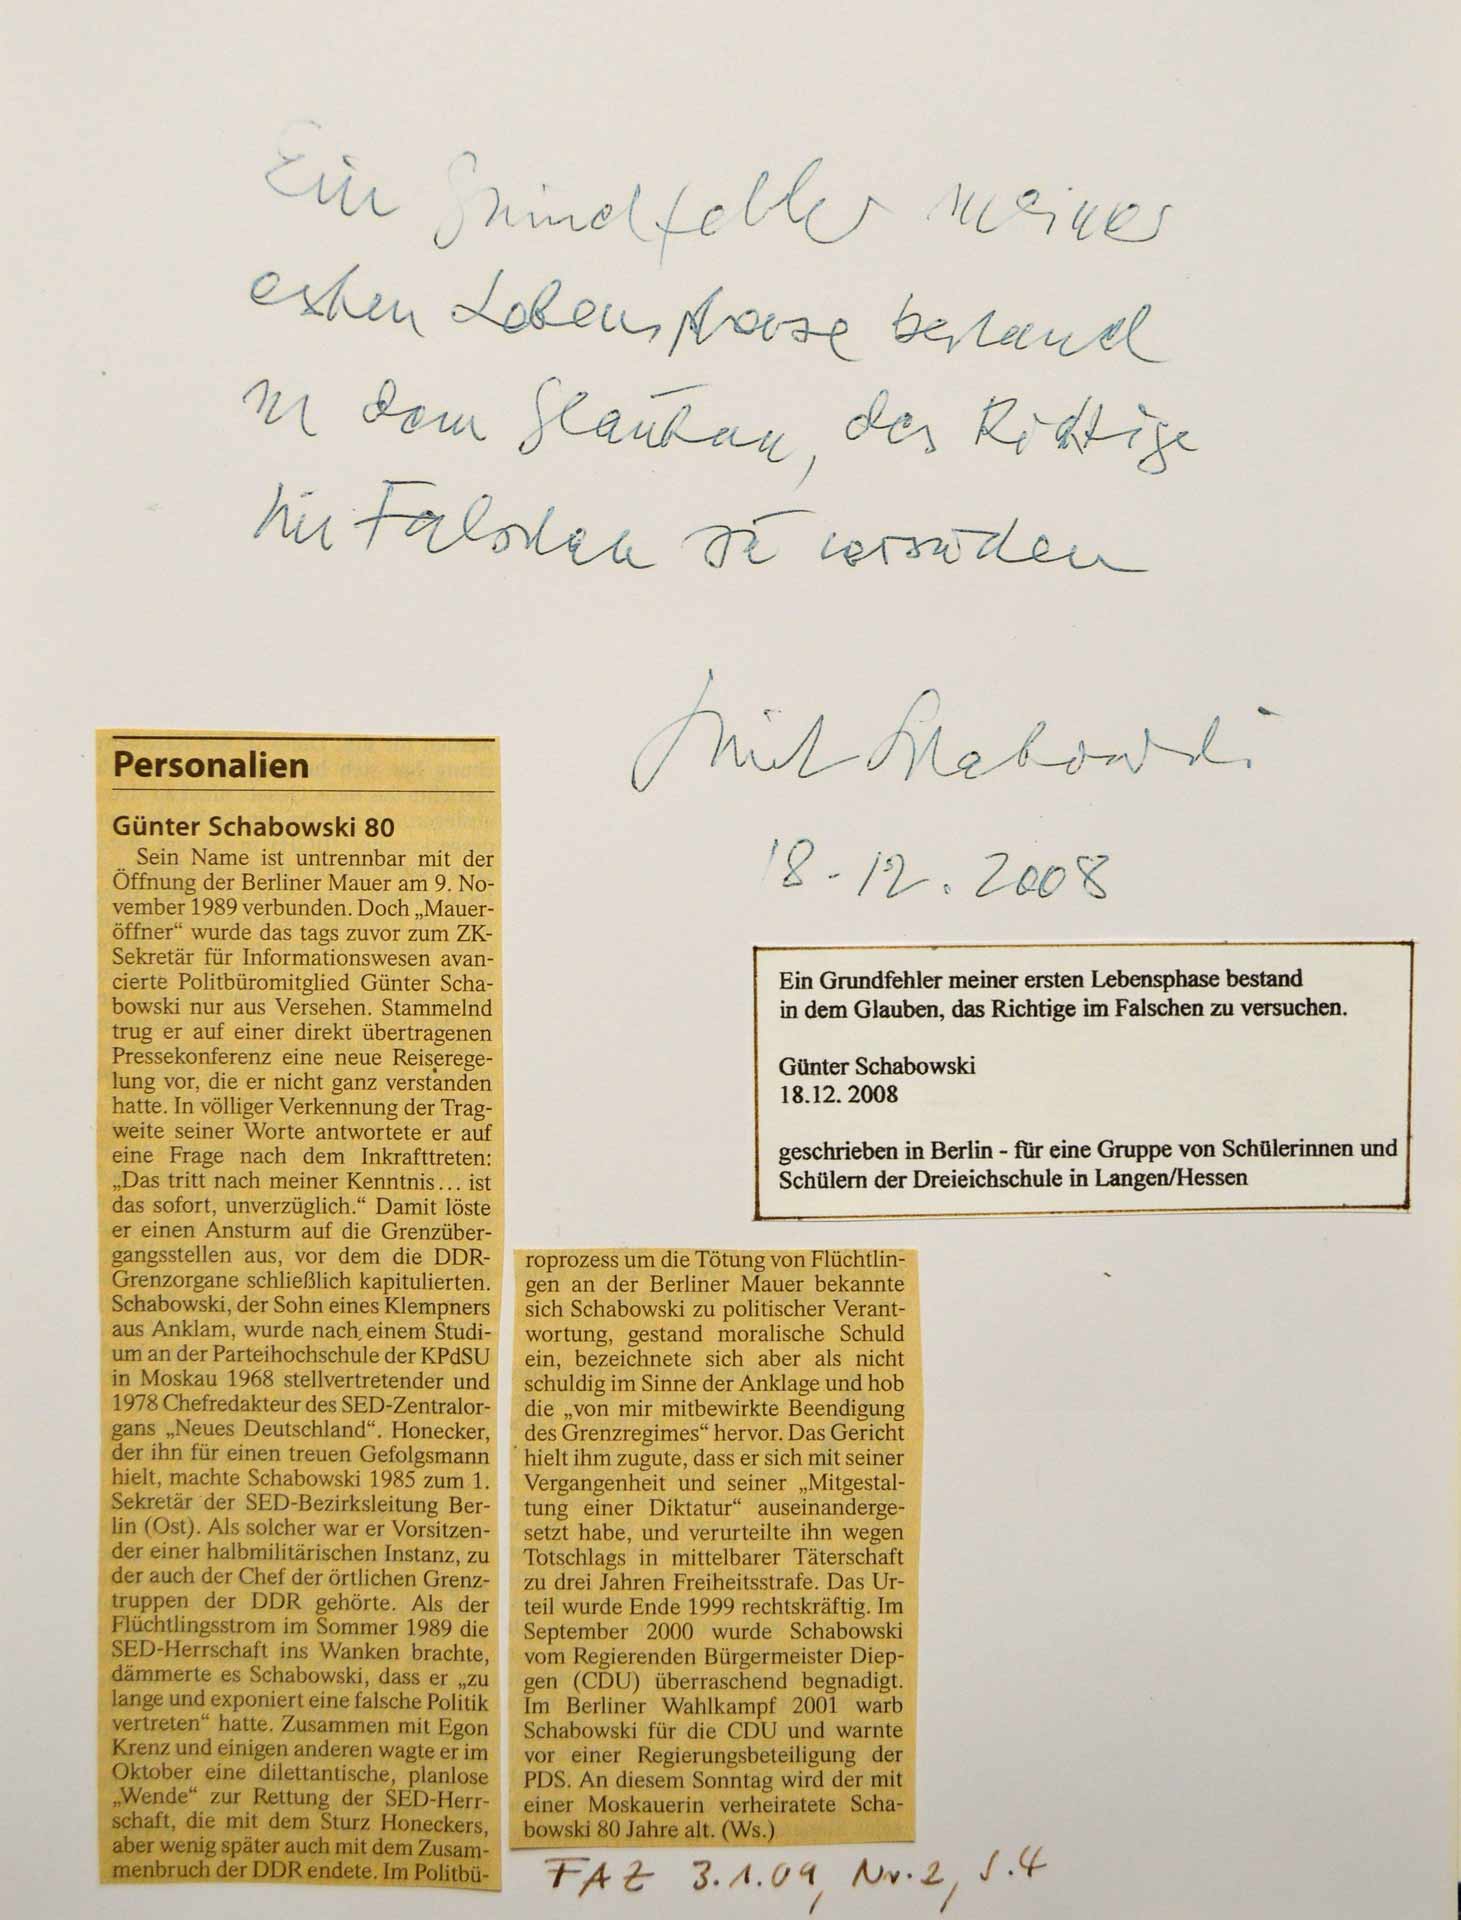 Ein Grundfehler meiner
ersten Lebensphase bestand
in dem Glauben, das Richtige
im Falschen zu versuchen
Günter Schabowski
18.12.2008
Personalien
Günter Schabowski 80
Sein Name ist untrennbar mit der
Öffnung der Berliner Mauer am 9. No-
vember 1989 verbunden. Doch „Mauer-
öffner“ wurde das tags zuvor zum ZK-
Sekretär für Informationswesen avan-
cierte Politbüromitglied Günter Scha-
bowski nur aus Versehen. Stammelnd
trug er auf einer direkt übertragenen
Pressekonferenz eine neue Reiserege-
lung vor, die er nicht ganz verstanden
hatte. In völliger Verkennung der Trag-
weite seiner Worte antwortete er auf
eine Frage nach dem Inkrafttreten:
„Das tritt nach meiner Kenntnis... ist
das sofort, unverzüglich.“ Damit löste
er einen Ansturm auf die Grenzüber-
gangsstellen aus, vor dem die DDR-
Grenzorgane schließlich kapitulierten.
Schabowski, der Sohn eines Klempners
aus Anklam, wurde nach einem Studi-
um an der Parteihochschule der KPdSU
in Moskau 1968 stellvertretender und
1978 Chefredakteur des SED-Zentralor-
gans „Neues Deutschland“. Honecker,
der ihn für einen treuen Gefolgsmann
hielt, machte Schabowski 1985 zum 1.
Sekretär der SED-Bezirksleitung Ber-
lin (Ost). Als solcher war er Vorsitzen-
der einer halbmilitärischen Instanz, zu
der auch der Chef der örtlichen Grenz-
truppen der DDR gehörte. Als der
Flüchtlingsstrom im Sommer 1989 die
SED-Herrschaft ins Wanken brachte,
dämmerte es Schabowski, dass er „zu
lange und exponiert eine falsche Politik
vertreten“ hatte. Zusammen mit Egon
Krenz und einigen anderen wagte er im
Oktober eine dilettantische, planlose
„Wende“ zur Rettung der SED-Herr-
schaft, die mit dem Sturz Honeckers,
aber wenig später auch mit dem Zusam-
menbruch der DDR endete. Im Politbü-
roprozess um die Tötung von Flüchtlin-
gen an der Berliner Mauer bekannte
sich Schabowski zu politischer Verant-
wortung, gestand moralische Schuld
ein, bezeichnete sich aber als nicht
schuldig im Sinne der Anklage und hob
die „von mir mitbewirkte Beendigung
des Grenzregimes“ hervor. Das Gericht
hielt ihm zugute, dass er sich mit seiner
Vergangenheit und seiner „Mitgestal-
tung einer Diktatur“ auseinanderge-
setzt habe, und verurteilte ihn wegen
Totschlags in mittelbarer Täterschaft
zu drei Jahren Freiheitsstrafe. Das Ur-
teil wurde Ende 1999 rechtskräftig. Im
September 2000 wurde Schabowski
vom Regierenden Bürgermeister Diep-
gen (CDU) überraschend begnadigt.
Im Berliner Wahlkampf 2001 warb
Schabowski für die CDU und warnte
vor einer Regierungsbeteiligung der
PDS. An diesem Sonntag wird der mit
einer Moskauerin verheiratete Scha-
bowski 80 Jahre alt. (Ws.)
Ein Grundfehler meiner ersten Lebensphase bestand
in dem Glauben, das Richtige im Falschen zu versuchen.
Günter Schabowski
18.12. 2008
geschrieben in Berlin - für eine Gruppe von Schülerinnen und
Schülern der Dreieichschule in Langen/Hessen
FAZ 3.1.09, Nr.2, S.4